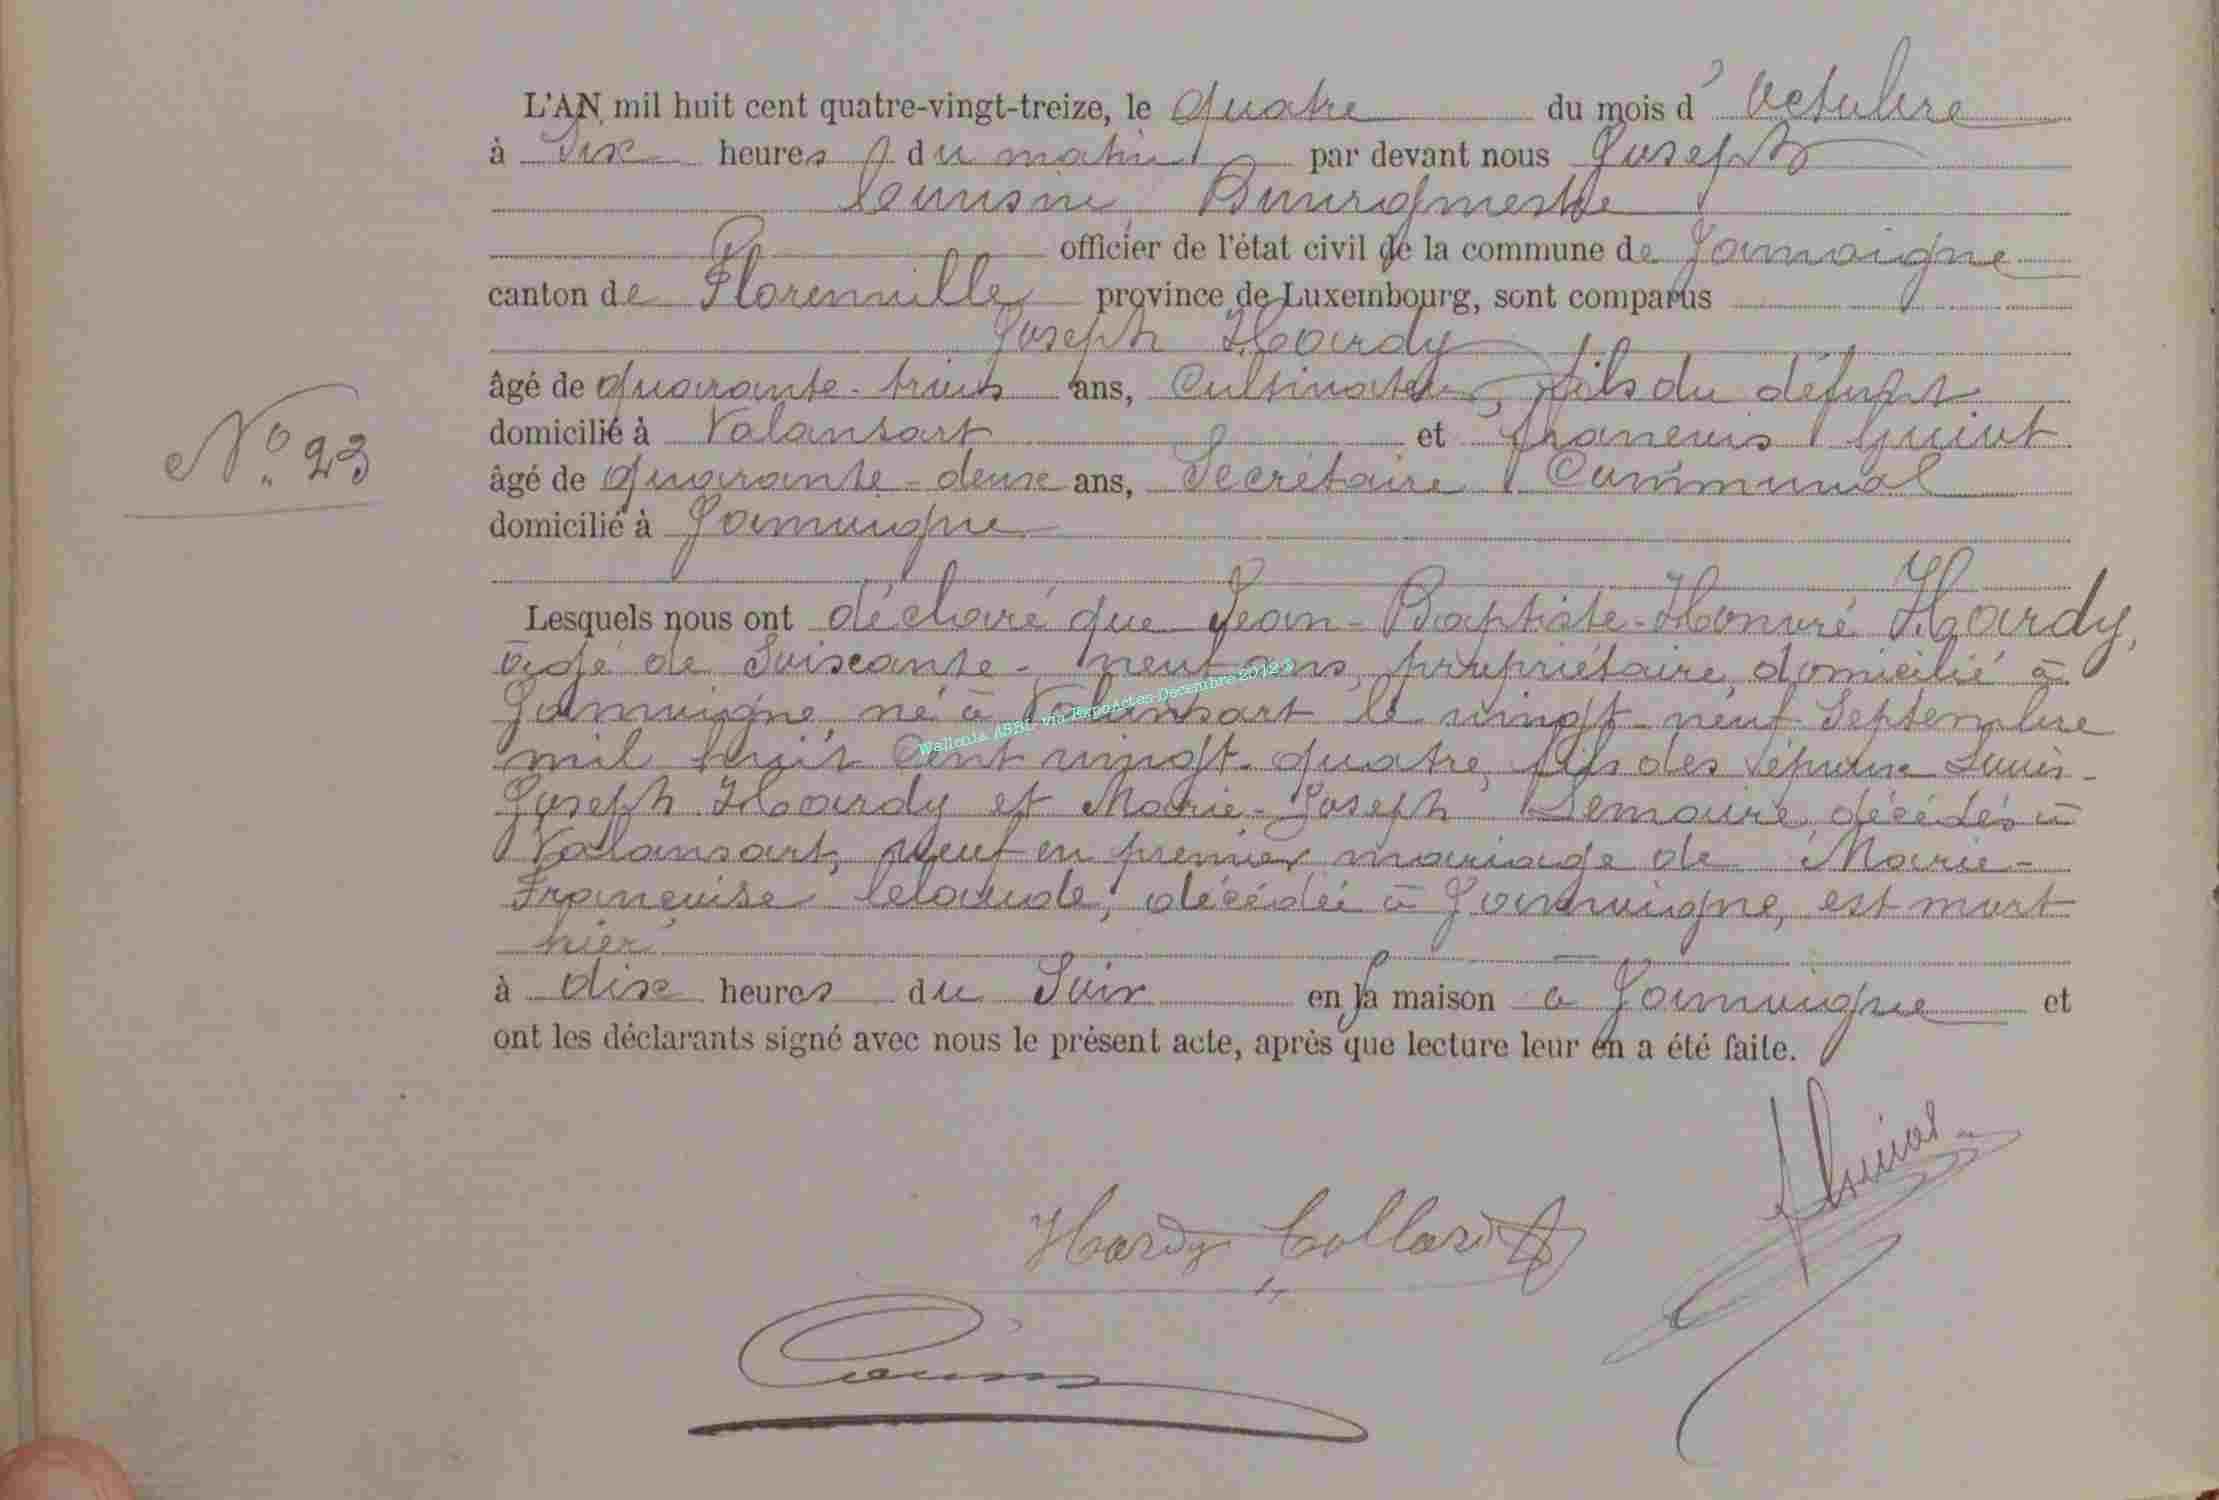 L'AN mil huit cent quatre-vingt-treize, le quatre du mois d'Octobre
à Six heures du matin par devant nous Joseph
Cousin, Bourgmestre
officier de l'état civil de la commune de Jamoigne
canton de Florenville province de Luxembourg, sont comparus
Joseph Hardy
âgé de quarante-trois ans, Cultivateur, fils du défunt
domicilié à Valansart et françois
N° 23
âgé de quarante-deux ans, Secrétaire Communal
domicilié à Jamoigne
Lesquels nous ont déclaré que Jean-Baptiste-Honoré Hardy,
âgé de Soixante-neuf ans, propriétaire, domicilié à
Jamoigne, né à Valansart le vingt-neuf Septembre
mil huit Cent vingt-quatre, fils des époux Louis-
Joseph Hardy et Marie-Joseph Lemaire, décédés à
Valansart, veuf en premier mariage de Marie-
Françoise Lelaude, décédée à Jamoigne, est mort
hier
à dix heures du Soir en sa maison à Jamoigne et
ont les déclarants signé avec nous le présent acte, après que lecture leur en a été faite.
Wallonia ASBL via ExpoActes Decembre 2012 ©
Hardy Collard
Cousin